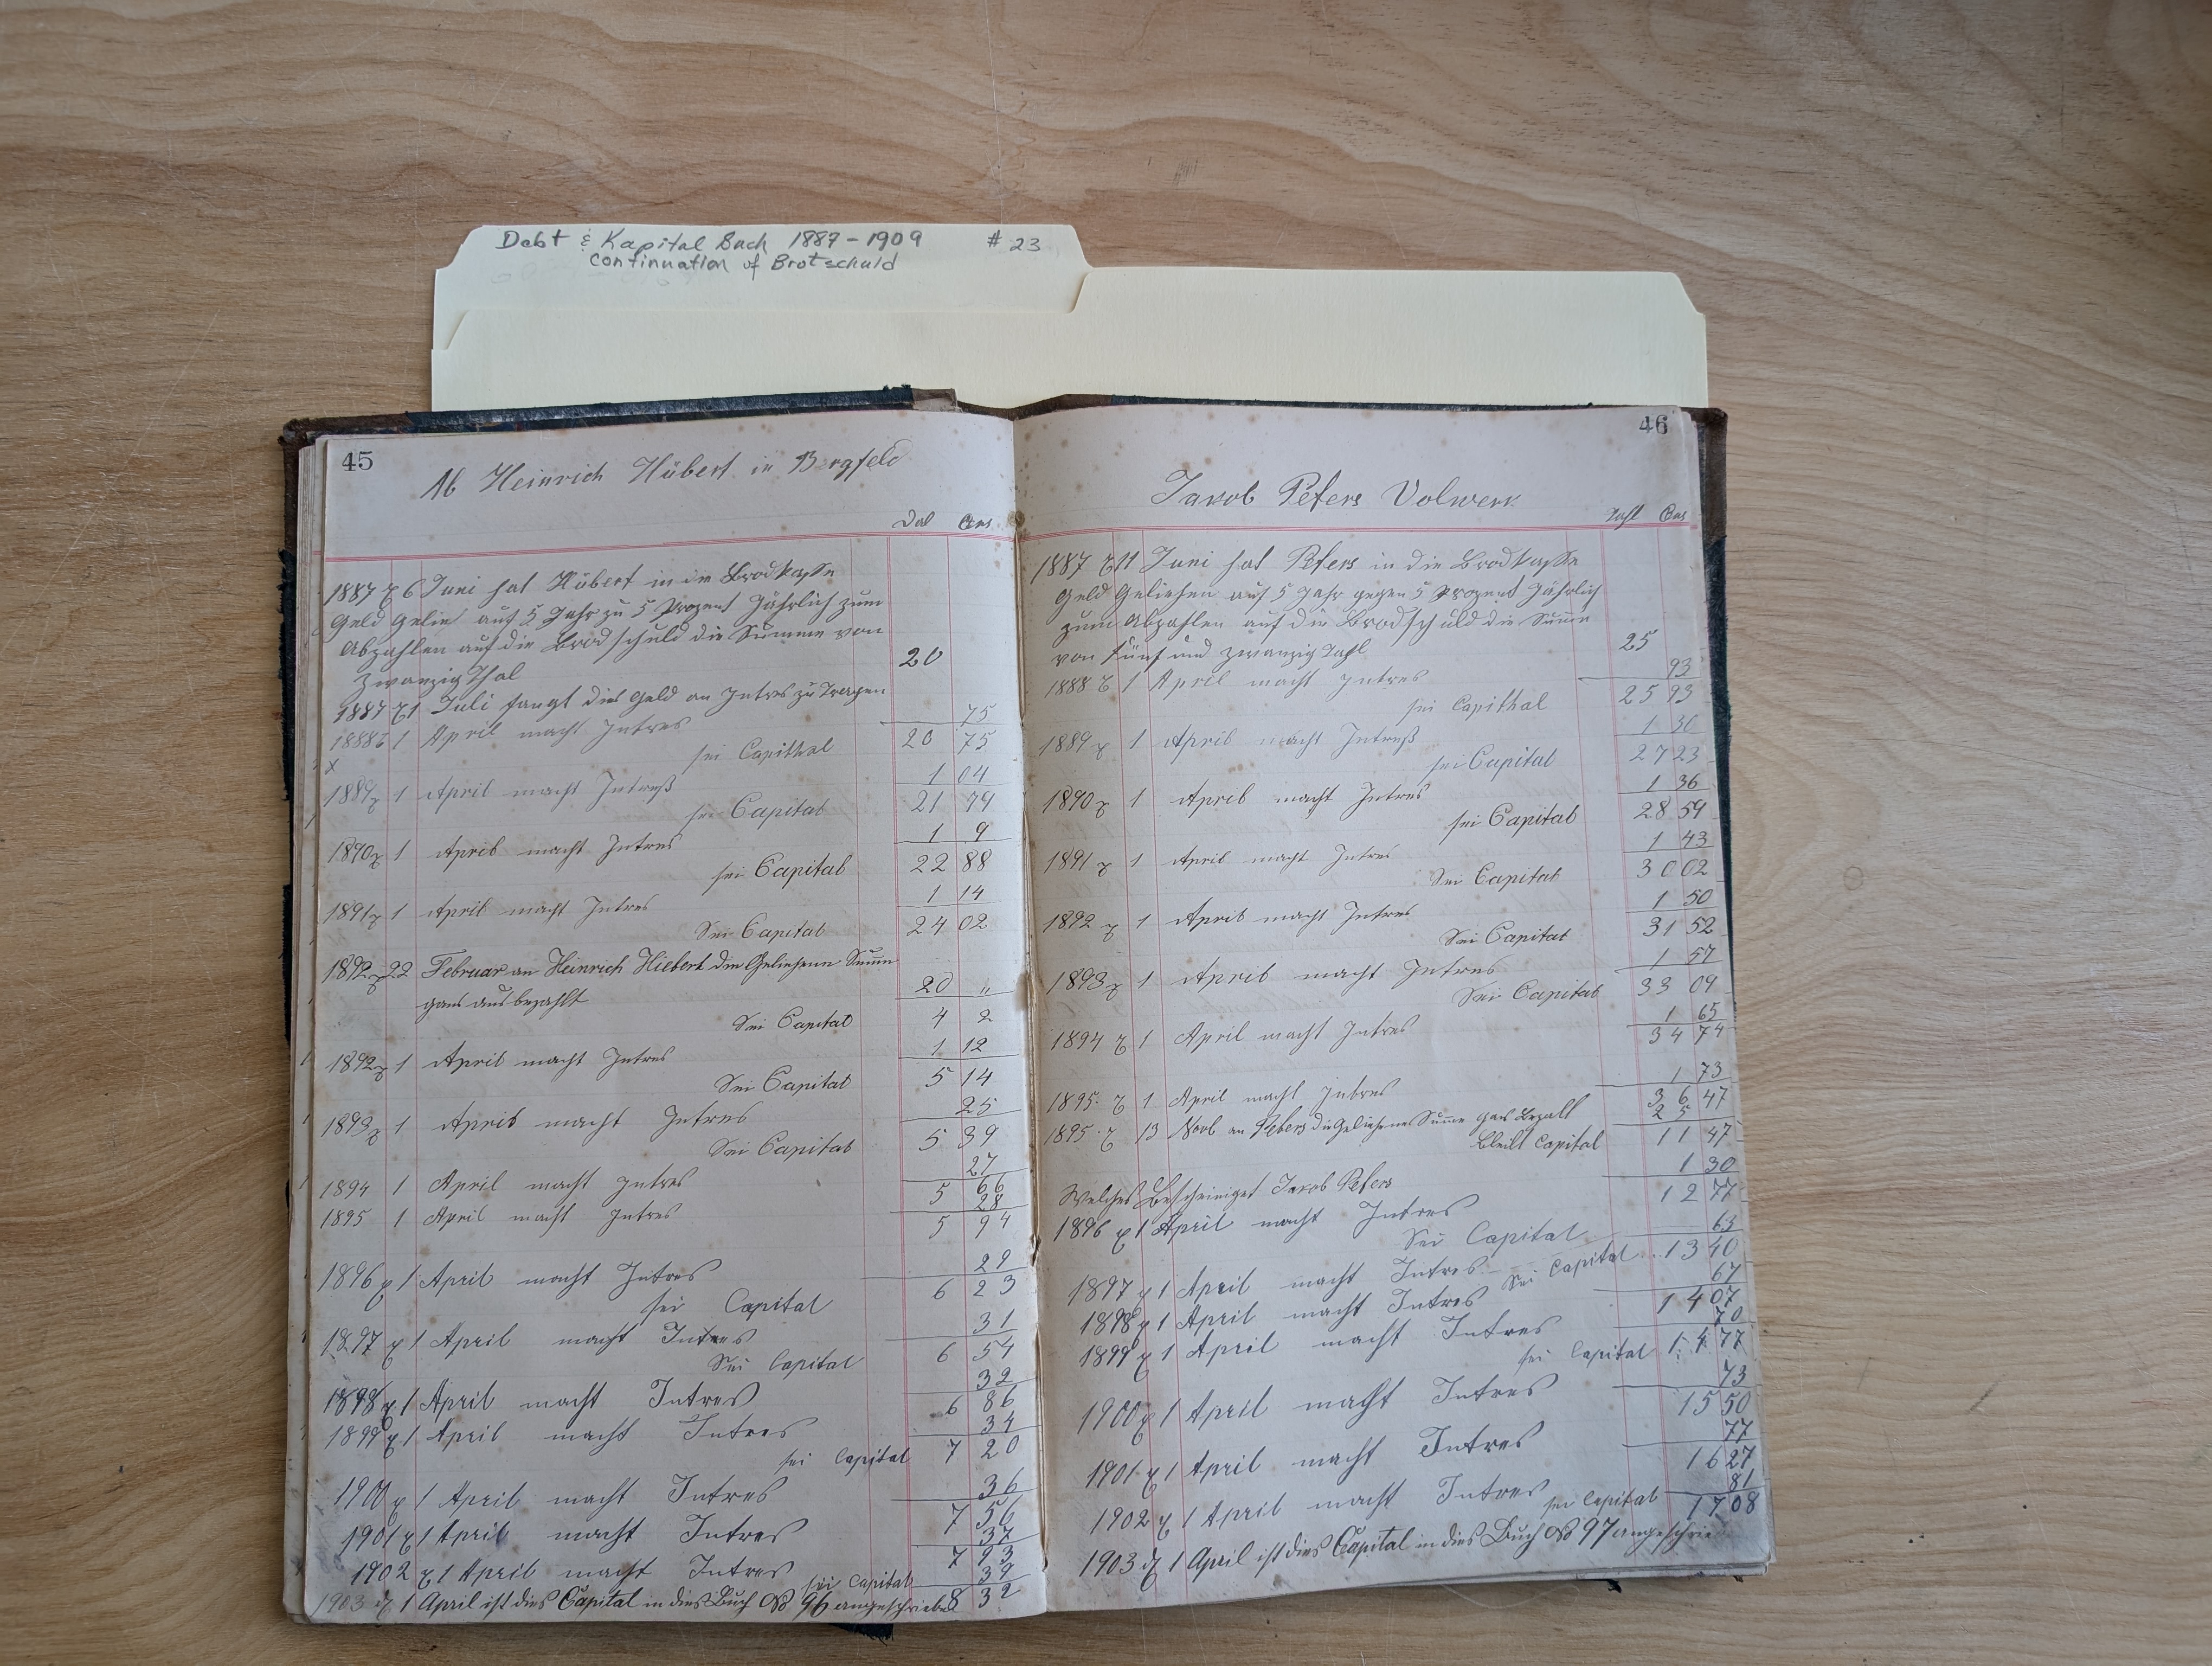 Debt & Kapital Buch 1887-1909 #23
continuation of Brotschuld
45
Ab Heinrich Hübert in Bergfeld
Dol Cens
1887 d 6 Juni hat Hübert in die Brodkasse
Geld Gelien auf 5 Jahr zu 5 Prozent Jährlich zum
Abzahlen auf die Brodschuld die Summe von
Zwanzig Thal 20
1887 d 1 Juli fangt dies Geld an Intres zu Tragen
1888 d 1 April macht Intres 75
sei Capithal 20 75
x
1889 d 1 April macht Intreß 1 04
sei Capital 21 79
1890 d 1 April macht Intres 1 9
sei Capital 22 88
1891 d 1 April macht Intres 1 14
Sei Capital 24 02
1892 d 22 Februar an Heinrich Hiebert die Geliehene Summ
ganz ausbezahlt 20 "
Sei Capital 4 2
1892 d 1 April macht Intres 1 12
Sei Capital 5 14
1893 d 1 April macht Intres 25
Sei Capital 5 39
1894 1 April macht Intres 27
5 66
1895 1 April macht Intres 28
5 94
1896 d 1 April macht Intres 29
sei Capital 6 23
1897 d 1 April macht Intres 31
Sei Capital 6 54
1898 d 1 April macht Intres 32
6 86
1899 d 1 April macht Intres 34
sei Capital 7 20
1900 d 1 April macht Intres 36
7 56
1901 d 1 April macht Intres 37
7 93
1902 d 1 April macht Intres 39
sei Capital 8 32
1903 d 1 April ist dies Capital in dies Buch No 96 angeschrieben
46
Jakob Peters Volwerk
Dahl Cens
1887 d 11 Juni hat Peters in die Brodkasse
Geld Geliehen auf 5 Jahr gegen 5 Prozent Jährlich
zum Abzahlen auf die Brodschuld die Summe
von fünf und zwanzig Dahl 25
1888 d 1 April macht Intres 93
sei Capithal 25 93
1889 d 1 April macht Intreß 1 30
sei Capital 27 23
1890 d 1 April macht Intres 1 36
sei Capital 28 59
1891 d 1 April macht Intres 1 43
Sei Capital 30 02
1892 d 1 April macht Intres 1 50
Sei Capital 31 52
1893 d 1 April macht Intres 1 57
Sei Capital 33 09
1894 d 1 April macht Intres 1 65
34 74
1895 d 1 April macht Intres 1 73
36 47
1895 d 13 Novb an Peters die Geliehene Summe ganz Bezalt 25
bleibt Capital 11 47
1 30
Welches Bescheiniget Jakob Peters
12 77
1896 d 1 April macht Intres
Sei Capital 63
1897 d 1 April macht Intres Sei Capital 13 40
67
1898 d 1 April macht Intres 14 07
1899 d 1 April macht Intres 70
sei Capital 14 77
1900 d 1 April macht Intres 73
15 50
1901 d 1 April macht Intres 77
16 27
1902 d 1 April macht Intres 81
sei Capital 17 08
1903 d 1 April ist dies Capital in dies Buch No 97 angeschrieb